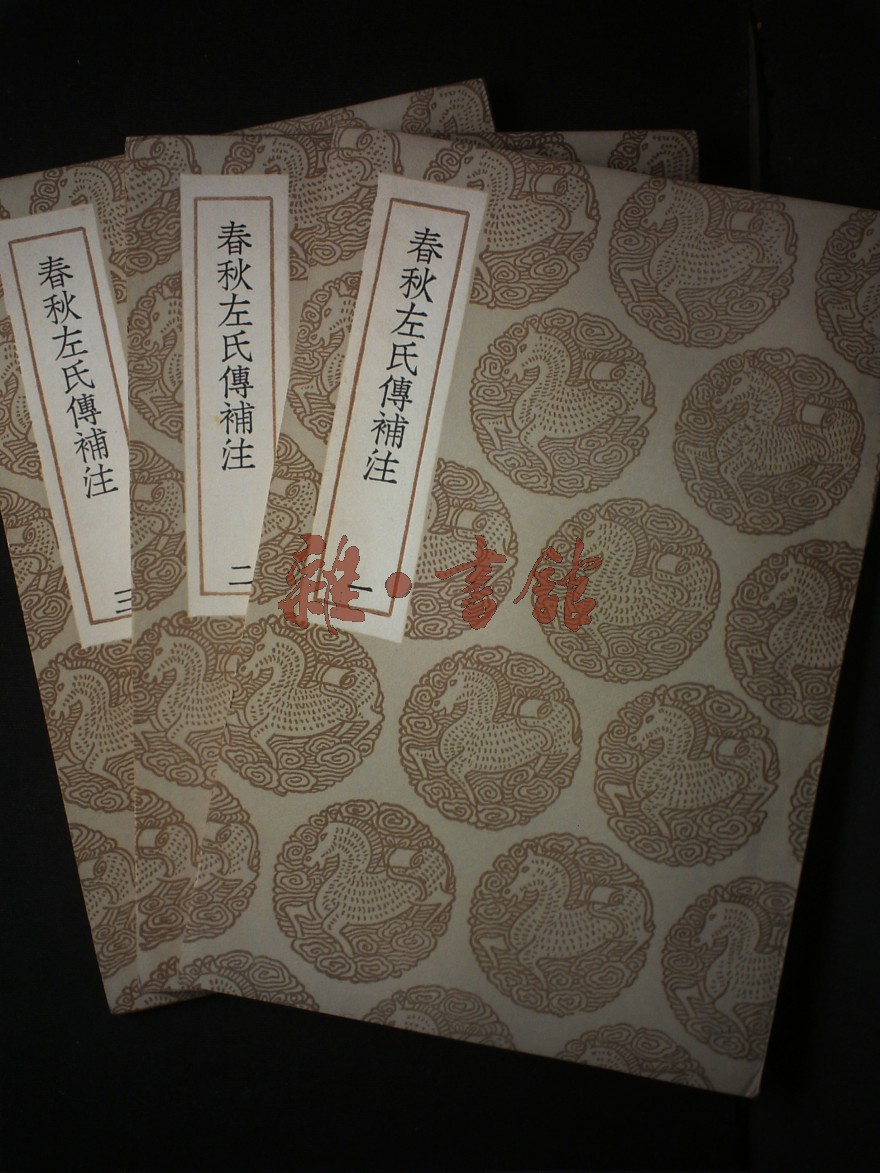 春秋左氏傳補注
一
春秋左氏傳補注
二
春秋左氏傳補注
三
雜·書館